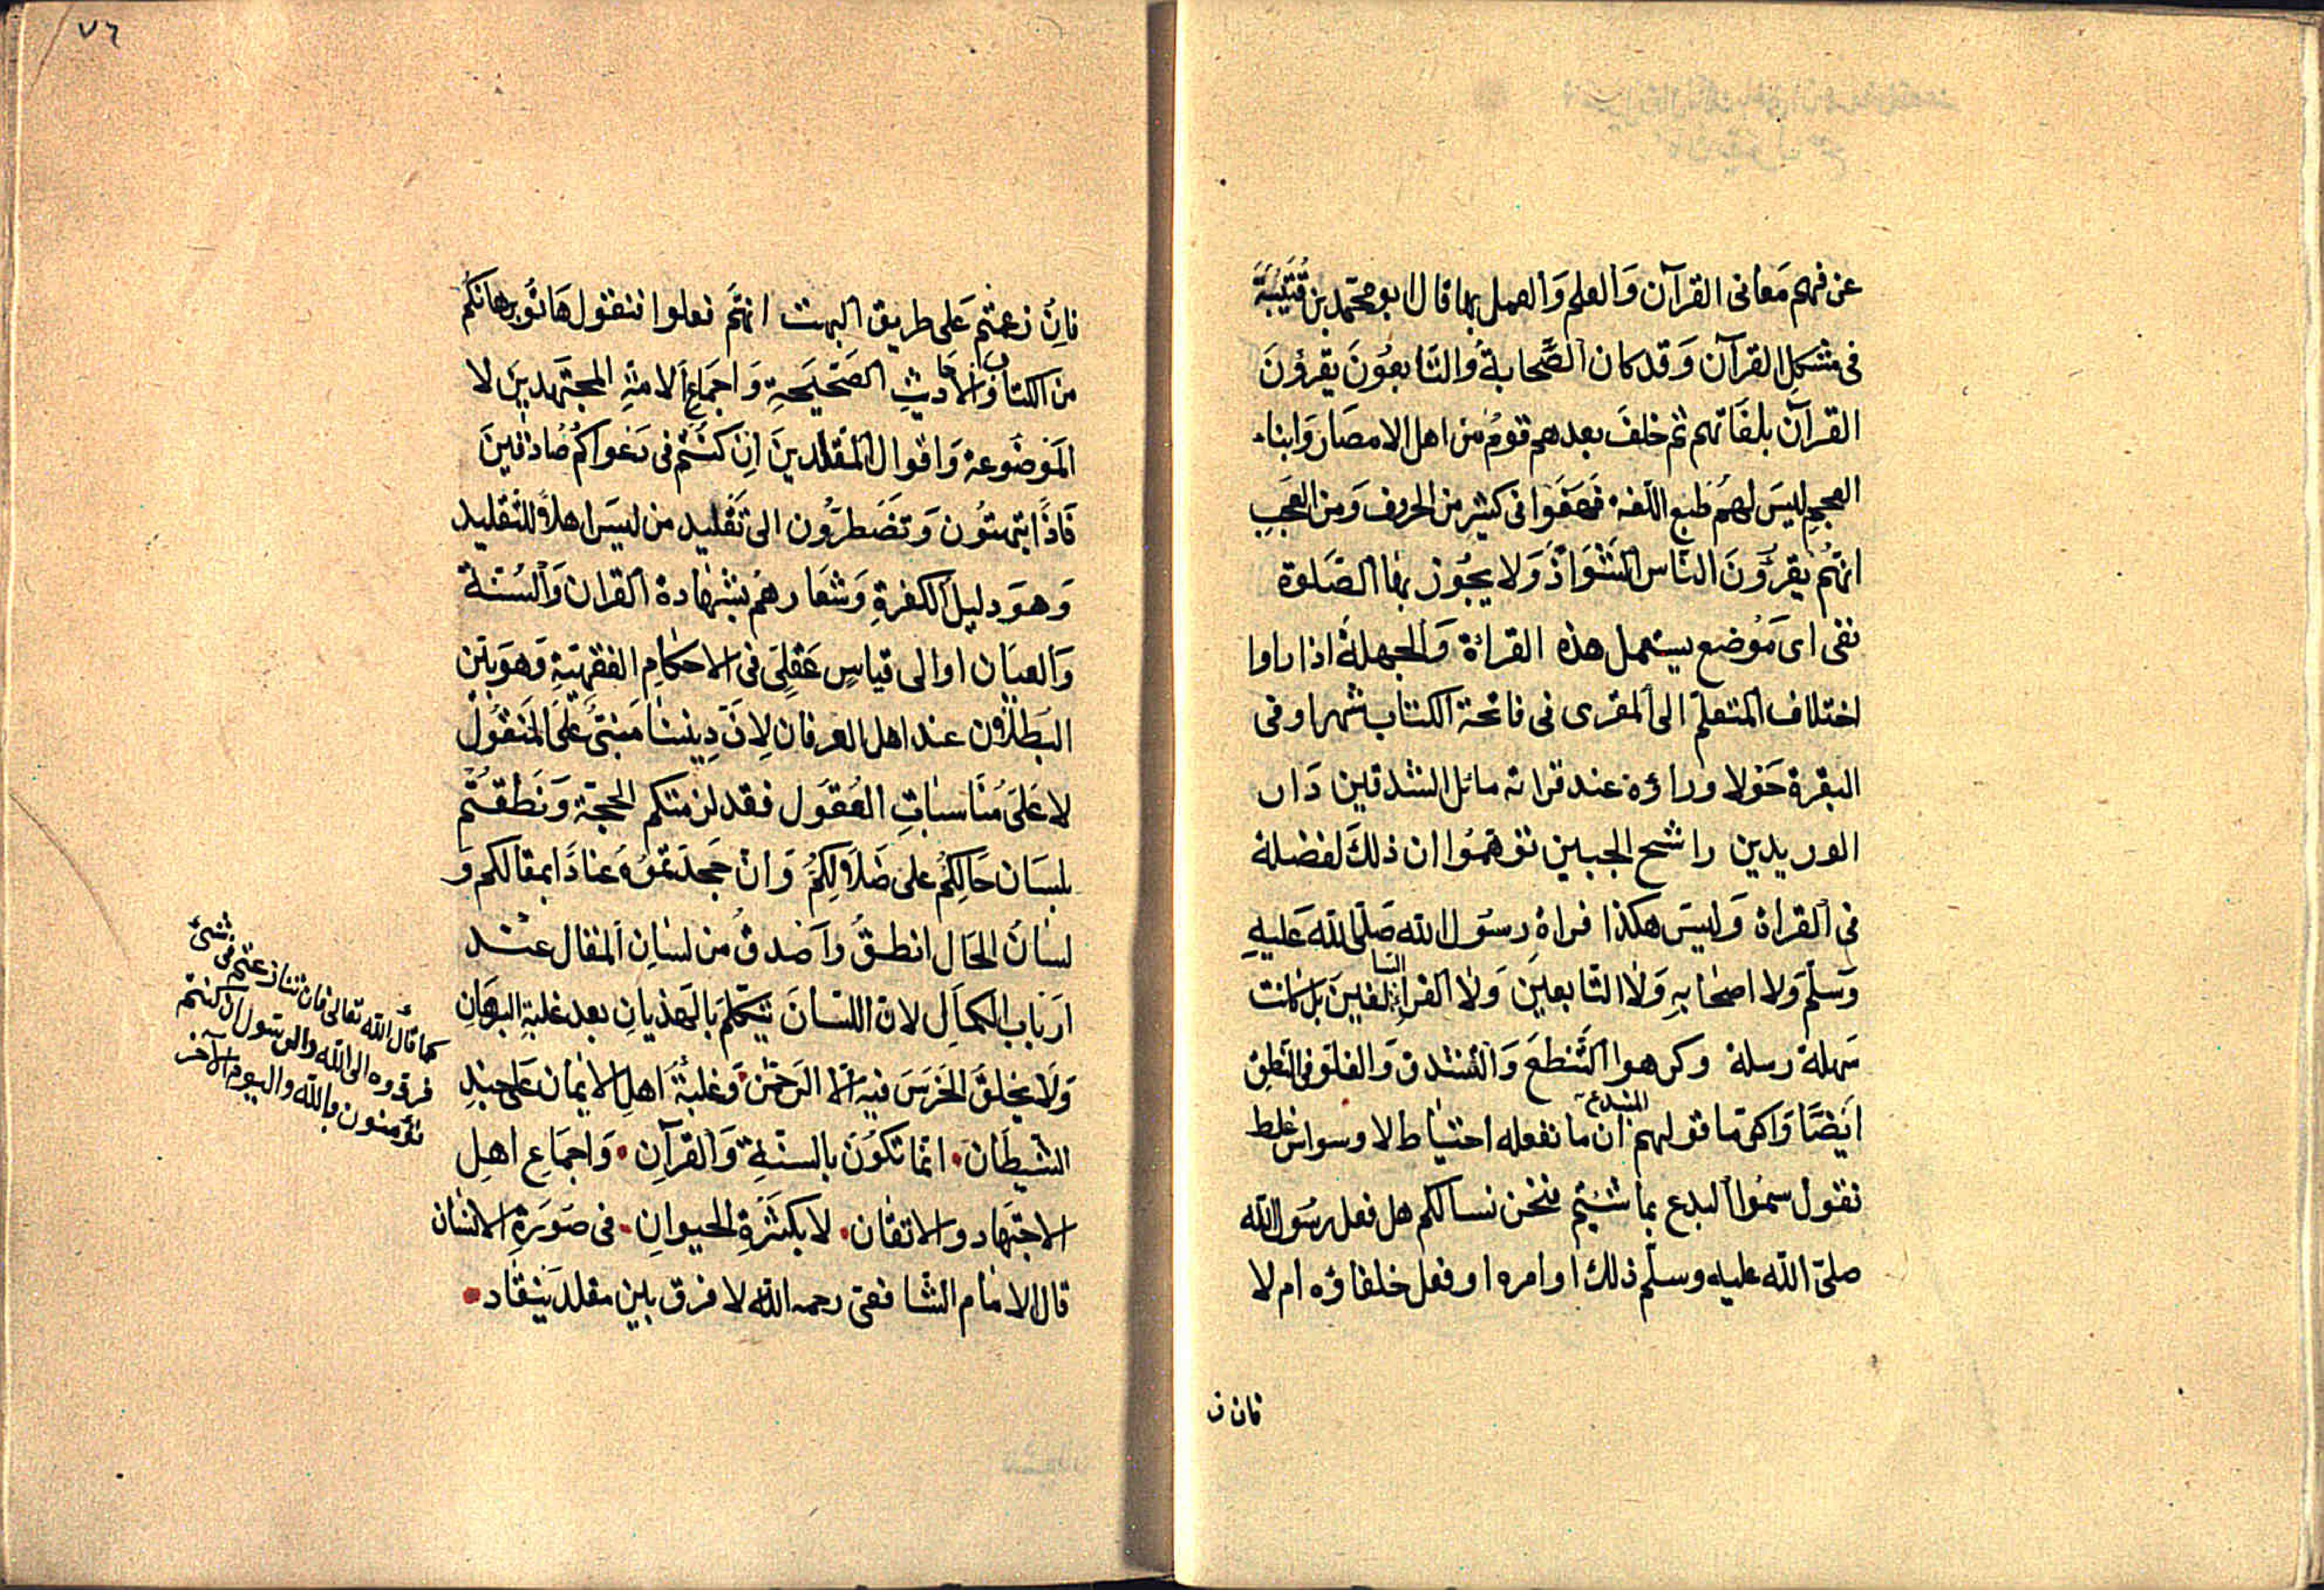 عن فهم مَعانى القرآن وَالعلم وَالعمل بها قال ابو محمّد بن قُتَيْبَةَ
فى مشكل القرآن وَقد كان الصَّحابةُ وَالتَّابعُونَ يقرؤنَ
القرآن بلغاتهم ثم خلفَ بعدهم قومٌ من اهل الامصَار وَابناء
العجمِ ليسَ لهُم طبع اللّغة فهَفَوا فى كثيرٍ من الحروف وَمن العَجَبِ
انهُم يقرؤنَ النّاس الشَّوَاذَّ وَلا يجُوز بها الصَّلوة
نفى اى مَوُضع يستعمل هذه القراءة وَالجهلةُ اذا راوا
اختلاف المتعلّم الى المقرى فى فاتحة الكتاب شهرا وفى
البقرة حَوْلا وراؤه عند قراته مائل الشدقين دَار
الوريدين راشح الجبين توهّمُوا ان ذلكَ لفضلة
فى القراة وَليسَ هكذا قراة رسُول الله صَلّى الله عَليهِ
وَسَلّم وَلا اصحَابهِ وَلا التّابعينَ وَلا القراء السّالفين بل كانت
سَهلة رسلة وكرهوا التَّنطعَ وَالتشدق وَالغلوّ فى النّطق
ايضًا وَاكنّ ما قولهم المبتدع ان ما نفعله احتيَاط لا وسواس غلط
نقول سمُوا البدع بما شئتم فنحن نسالكم هل فعل رسُول الله
صلىّ الله عليه وسلّم ذلك او امره او فعل خلفاؤه ام لا
فان ز
٧٦
فانْ زعمتم عَلى طريق البهت انهمُ فعلوا فنقول هَاتُوا برهانكم
من الكتاب وَالاحاديثِ الصَّحيحَةِ وَاجمَاعِ الامّةِ المجتَهدينَ لا
المَوضُوعة وَاقوال المقلّدينَ اِن كنتُم فى دَعواكُم صَادقينَ
فَاذًا تبهتُون وَتضَطرُّون الى تقليد من ليسَ اهلاً للتقليد
وَهوَ دليل الكفرةِ وَشعَارهُم بشهَادة القران وَالسُّنّة
وَالعيَان او الى قياسٍ عَقلىّ فى الاحكامِ الفقهيّةِ وَهوَ بيّن
البُطلان عند اهل العرفان لِانّ دِيننا مَبنىّ عَلى المَنقوُل
لا عَلىَ مُنَاسبَاتِ العُقوُل فقد لزمتكم الحجّة وَنَطقتُم
بلسَان حَالكُم على ضَلاَلِكُمْ وَان جَحدتمُوُهُ عنادًا بمقالكم وَ
لسَانُ الحَال انطقُ وَاَصْدقُ من لسَانِ المقال عنْد
ارَباب الكمَالِ لان اللسَانَ يتكلّم بالهَذيانِ بعد غلبةِ البرهَانِ
وَلَا يخلقُ الخرَسَ فيه الّا الرّحمن وَغلبةُ اَهلِ الايمَان عَلى جندِ
الشيطَان. انمّا تكوُنَ بالسنّةِ وَالقرآنِ. وَاجمَاعِ اهلِ
الاجتهَاد والاتقان. لا بكثرَةِ الحيوانِ. فى صَوُرَةِ الانسَان
قال الامَام الشَّافعىّ رحمه الله لا فرق بين مقلد يَنقاد.
كما قال الله تعالى فان تنازعتم فى شئ
فردّوه الى الله والرسُول ان كنتم
تؤمنون بالله واليوم الآخر